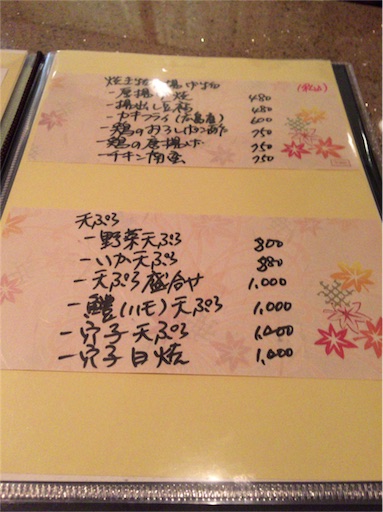 焼き物 揚げ物
(税込)
一厚揚げ焼 480
一揚出し豆腐 480
一カキフライ(広島産) 600
一鶏のおろしポン酢 750
一鶏の唐揚 750
一チキン南蛮 750
天ぷら
一野菜天ぷら 800
一いか天ぷら 880
一天ぷら盛合せ 1,000
一鱧(ハモ)天ぷら 1,000
一穴子天ぷら 1,400
一穴子白焼 1,400